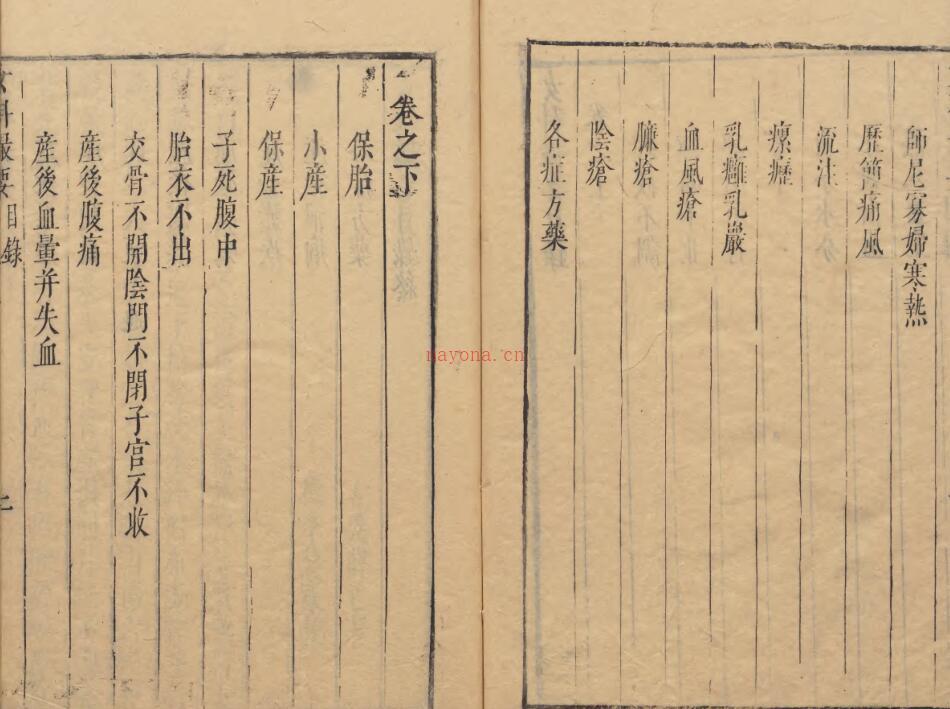 師尼寡婦寒熱
歷節痛風
流注
瘰癧
乳癰乳巖
血風瘡
臁瘡
陰瘡
各症方藥
卷之下
保胎
小産
保産
子死腹中
胎衣不出
交骨不開陰門不閉子宮不收
産後腹痛
産後血暈并失血
女科撮要目錄
nayona.cn